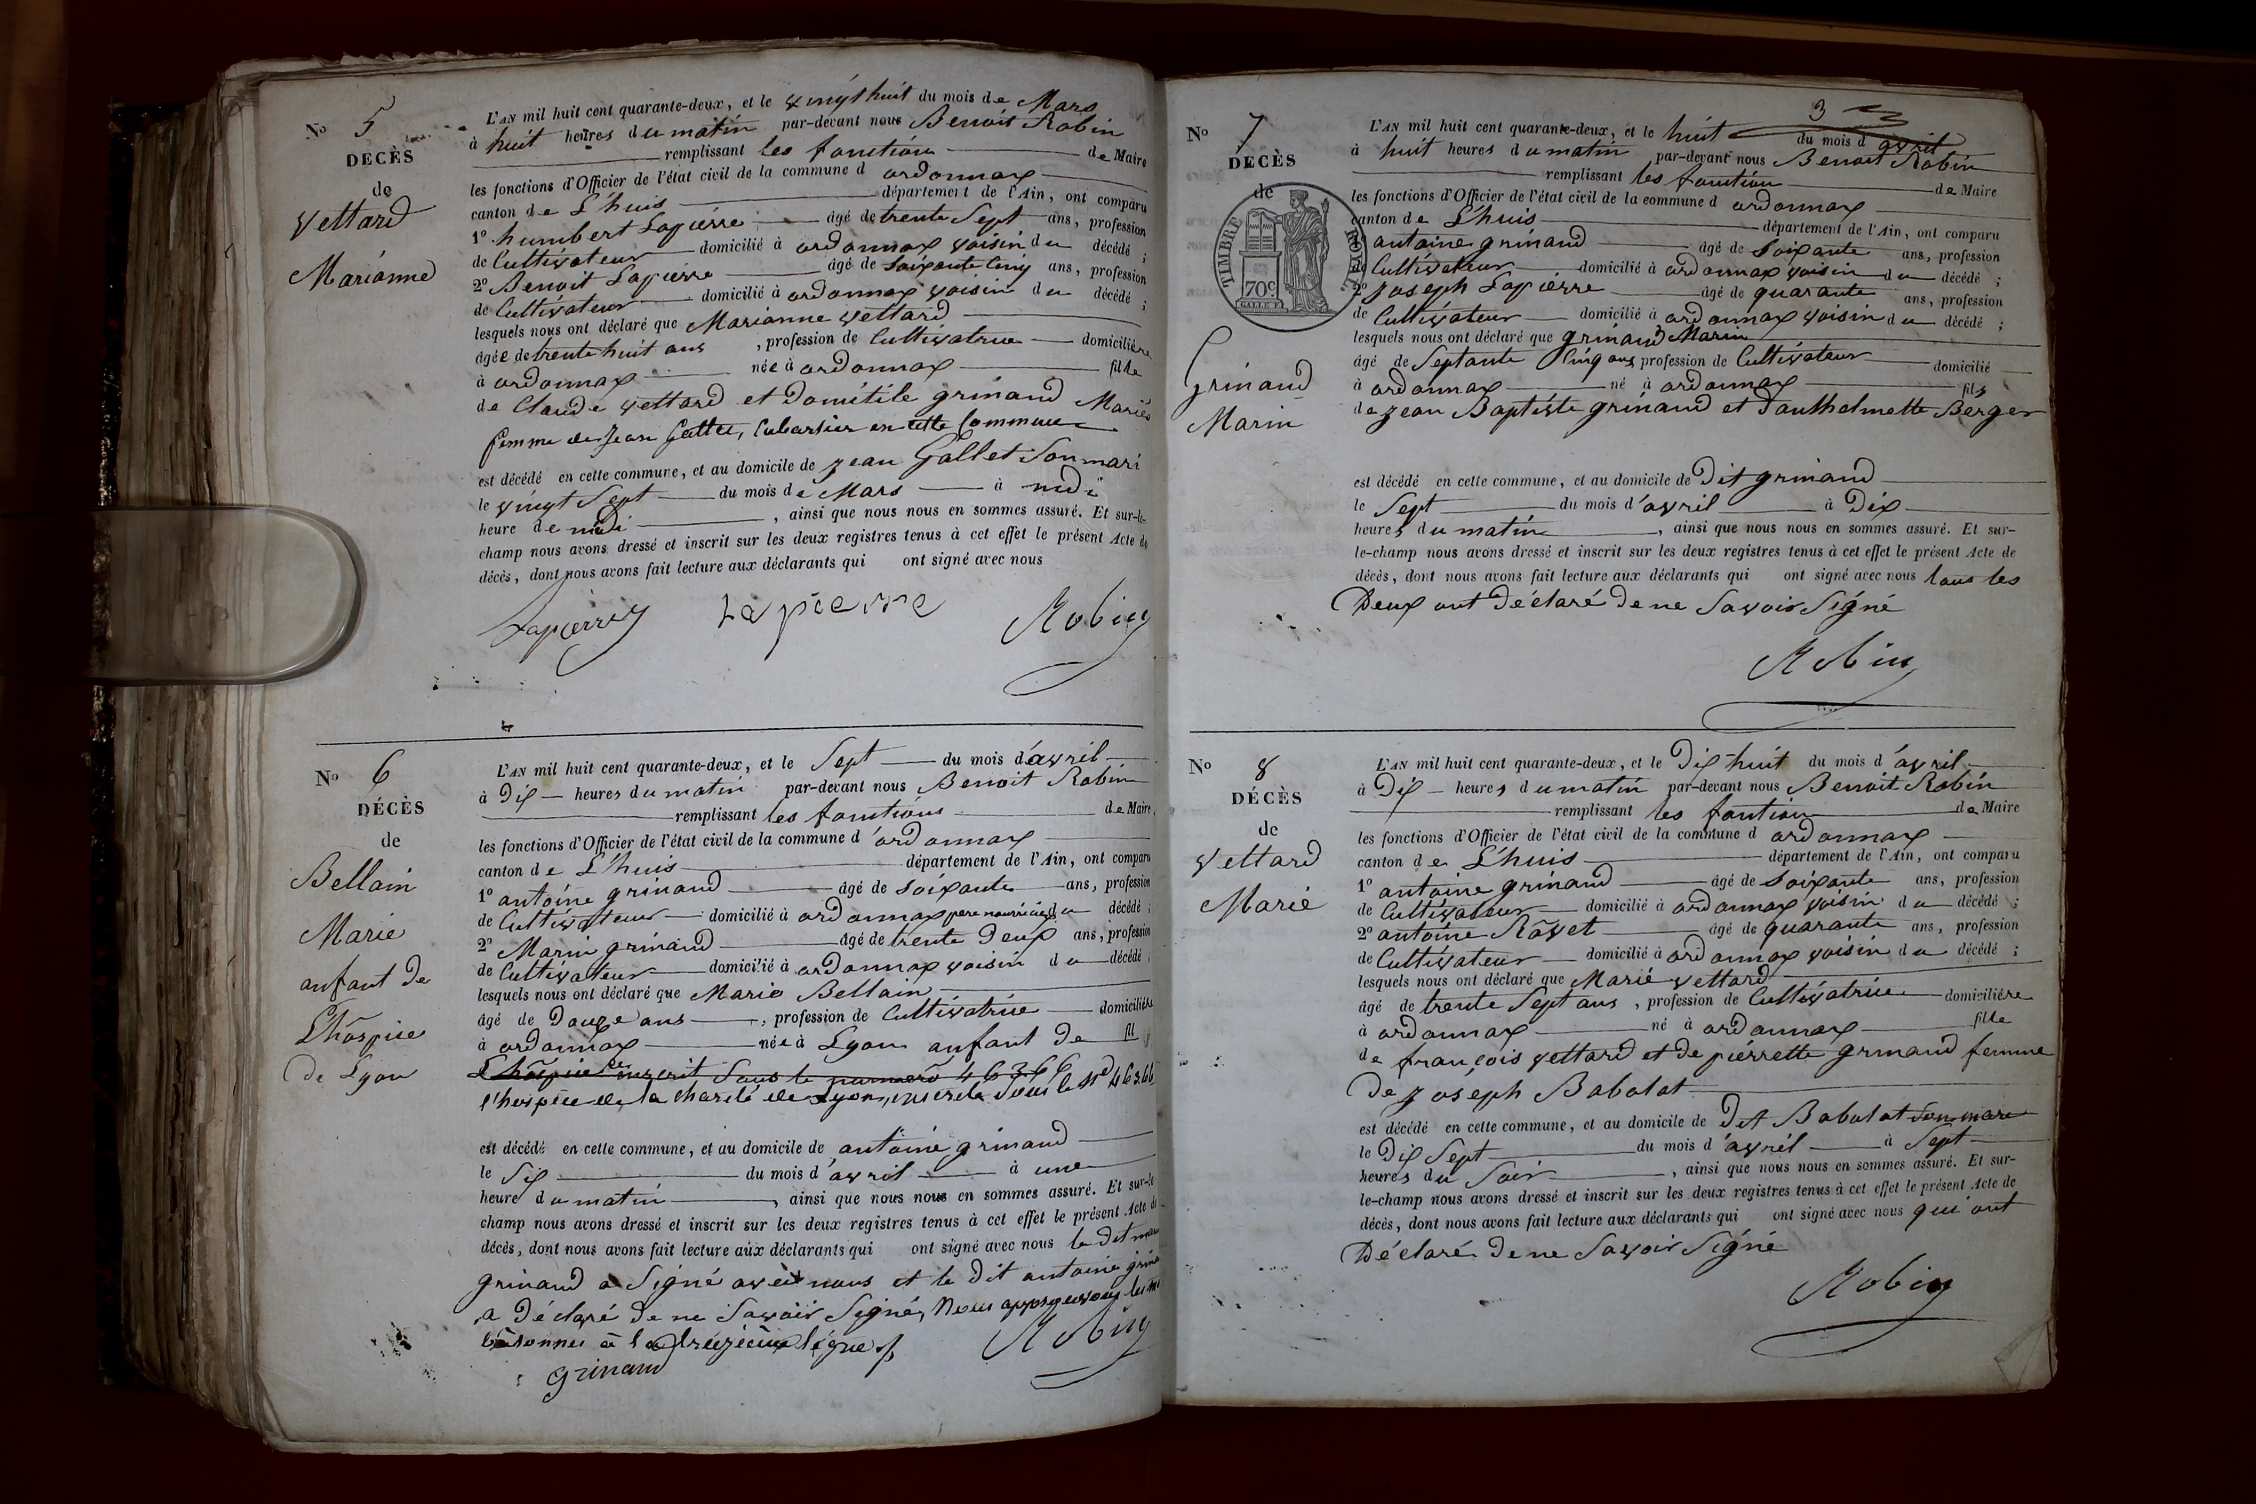 No 5
DÉCÈS
de
Vettard
Marianne
L'AN mil huit cent quarante-deux, et le vingt huit du mois de Mars
à huit heures du matin par-devant nous Benoit Robin
remplissant les fonction de Maire
les fonctions d'Officier de l'état civil de la commune d ordonnax
canton de L'huis département de l'Ain, ont comparu
1º humbert Lapierre âgé de trente Sept ans, profession
de Cultivateur domicilié à ordonnax voisin du décédé ;
2º Benoit Lapierre âgé de Soixante Cinq ans, profession
de Cultivateur domicilié à ordonnax voisin du décédé ;
lesquels nous ont déclaré que Marianne Vettard
âgée de trente huit ans , profession de Cultivatrice domiciliére
à ordonnax née à ordonnax fille
de Claude Vettard et Domitile grinand Mariés
femme de Jean Gallet, Cabartier en cette Commune
est décédé en cette commune, et au domicile de Jean Gallet Son mari
le vingt Sept du mois de Mars à midi
heure de midi , ainsi que nous nous en sommes assuré. Et sur-le-
champ nous avons dressé et inscrit sur les deux registres tenus à cet effet le présent Acte de
décès, dont nous avons fait lecture aux déclarants qui ont signé avec nous
Lapierre Lapierre Robin
No 6
DÉCÈS
de
Bellain
Marie
anfant De
L'hospice
De Lyon
L'AN mil huit cent quarante-deux, et le Sept du mois d'avril
à Dix heures du matin par-devant nous Benoit Robin
remplissant les fonctions de Maire
les fonctions d'Officier de l'état civil de la commune d'ordonnax
canton de L'huis département de l'Ain, ont comparu
1º antoine grinand âgé de Soixante ans, profession
de Cultivateur domicilié à ordonnax pere nourricier du décédé ;
2º Marin grinand âgé de trente Deux ans, profession
de Cultivateur domicilié à ordonnax voisin du décédé ;
lesquels nous ont déclaré que Marie Bellain
âgé de Douze ans , profession de Cultivatrice domiciliére
à ordonnax née à Lyon anfant De fil
L'hospice inscrit Sous le numero 46366
l'hospice de la charité de Lyon, inscrite Sous le Nº 46366
est décédé en cette commune, et au domicile de antoine grinand
le Six du mois d'avril à une
heure du matin , ainsi que nous nous en sommes assuré. Et sur-le
champ nous avons dressé et inscrit sur les deux registres tenus à cet effet le présent Acte de
décès, dont nous avons fait lecture aux déclarants qui ont signé avec nous le Dit
grinand a Signé avec nous et le Dit antoine
a Déclaré De ne Savoir Signé, Nous approuvons les
batonnés à la treizième ligne
Grinand Robin
3
No 7
DÉCÈS
de
TIMBRE ROYAL
70c
Grinand
Marin
L'AN mil huit cent quarante-deux, et le huit du mois d avril
à huit heures du matin par-devant nous Benoit Robin
remplissant les fonction de Maire
les fonctions d'Officier de l'état civil de la commune d ordonnax
canton de L'huis département de l'Ain, ont comparu
antoine grinand âgé de Soixante ans, profession
de Cultivateur domicilié à ordonnax voisin du décédé ;
2º Joseph Lapierre âgé de quarante ans, profession
de Cultivateur domicilié à ordonnax voisin du décédé ;
lesquels nous ont déclaré que grinand Marin
âgé de Septante Cinq ans profession de Cultivateur domicilié
à ordonnax né à ordonnax fils
de Jean Baptiste grinand et D'anthelmette Berger
est décédé en cette commune, et au domicile de Dit grinand
le Sept du mois d'avril à Dix
heures du matin , ainsi que nous nous en sommes assuré. Et sur-
le-champ nous avons dressé et inscrit sur les deux registres tenus à cet effet le présent Acte de
décès, dont nous avons fait lecture aux déclarants qui ont signé avec nous tous les
Deux ont Déclaré De ne Savoir Signé
Robin
No 8
DÉCÈS
de
Vettard
Marie
L'AN mil huit cent quarante-deux, et le Dix-huit du mois d'avril
à Dix heures du matin par-devant nous Benoit Robin
remplissant les fontion de Maire
les fonctions d'Officier de l'état civil de la commune d ordonnax
canton de L'huis département de l'Ain, ont comparu
1º antoine grinand âgé de Soixante ans, profession
de Cultivateur domicilié à ordonnax voisin du décédé ;
2º antoine Ravet âgé de quarante ans, profession
de Cultivateur domicilié à ordonnax voisin du décédé ;
lesquels nous ont déclaré que Marie Vettard
âgé de trente Sept ans , profession de Cultivatrice domiciliére
à ordonnax né à ordonnax fille
de françois Vettard et de pierrette grinand femme
De Joseph Babolat
est décédé en cette commune, et au domicile de Dit Babolat Son mare
le Dix Sept du mois d'avril à Sept
heures du Soir , ainsi que nous nous en sommes assuré. Et sur-
le-champ nous avons dressé et inscrit sur les deux registres tenus à cet effet le présent Acte de
décès, dont nous avons fait lecture aux déclarants qui ont signé avec nous qui ont
Déclaré De ne Savoir Signé
Robin